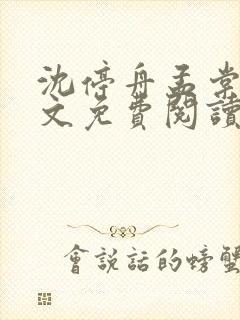 沈停舟孟棠
文免費閱讀
會說話的螃蟹